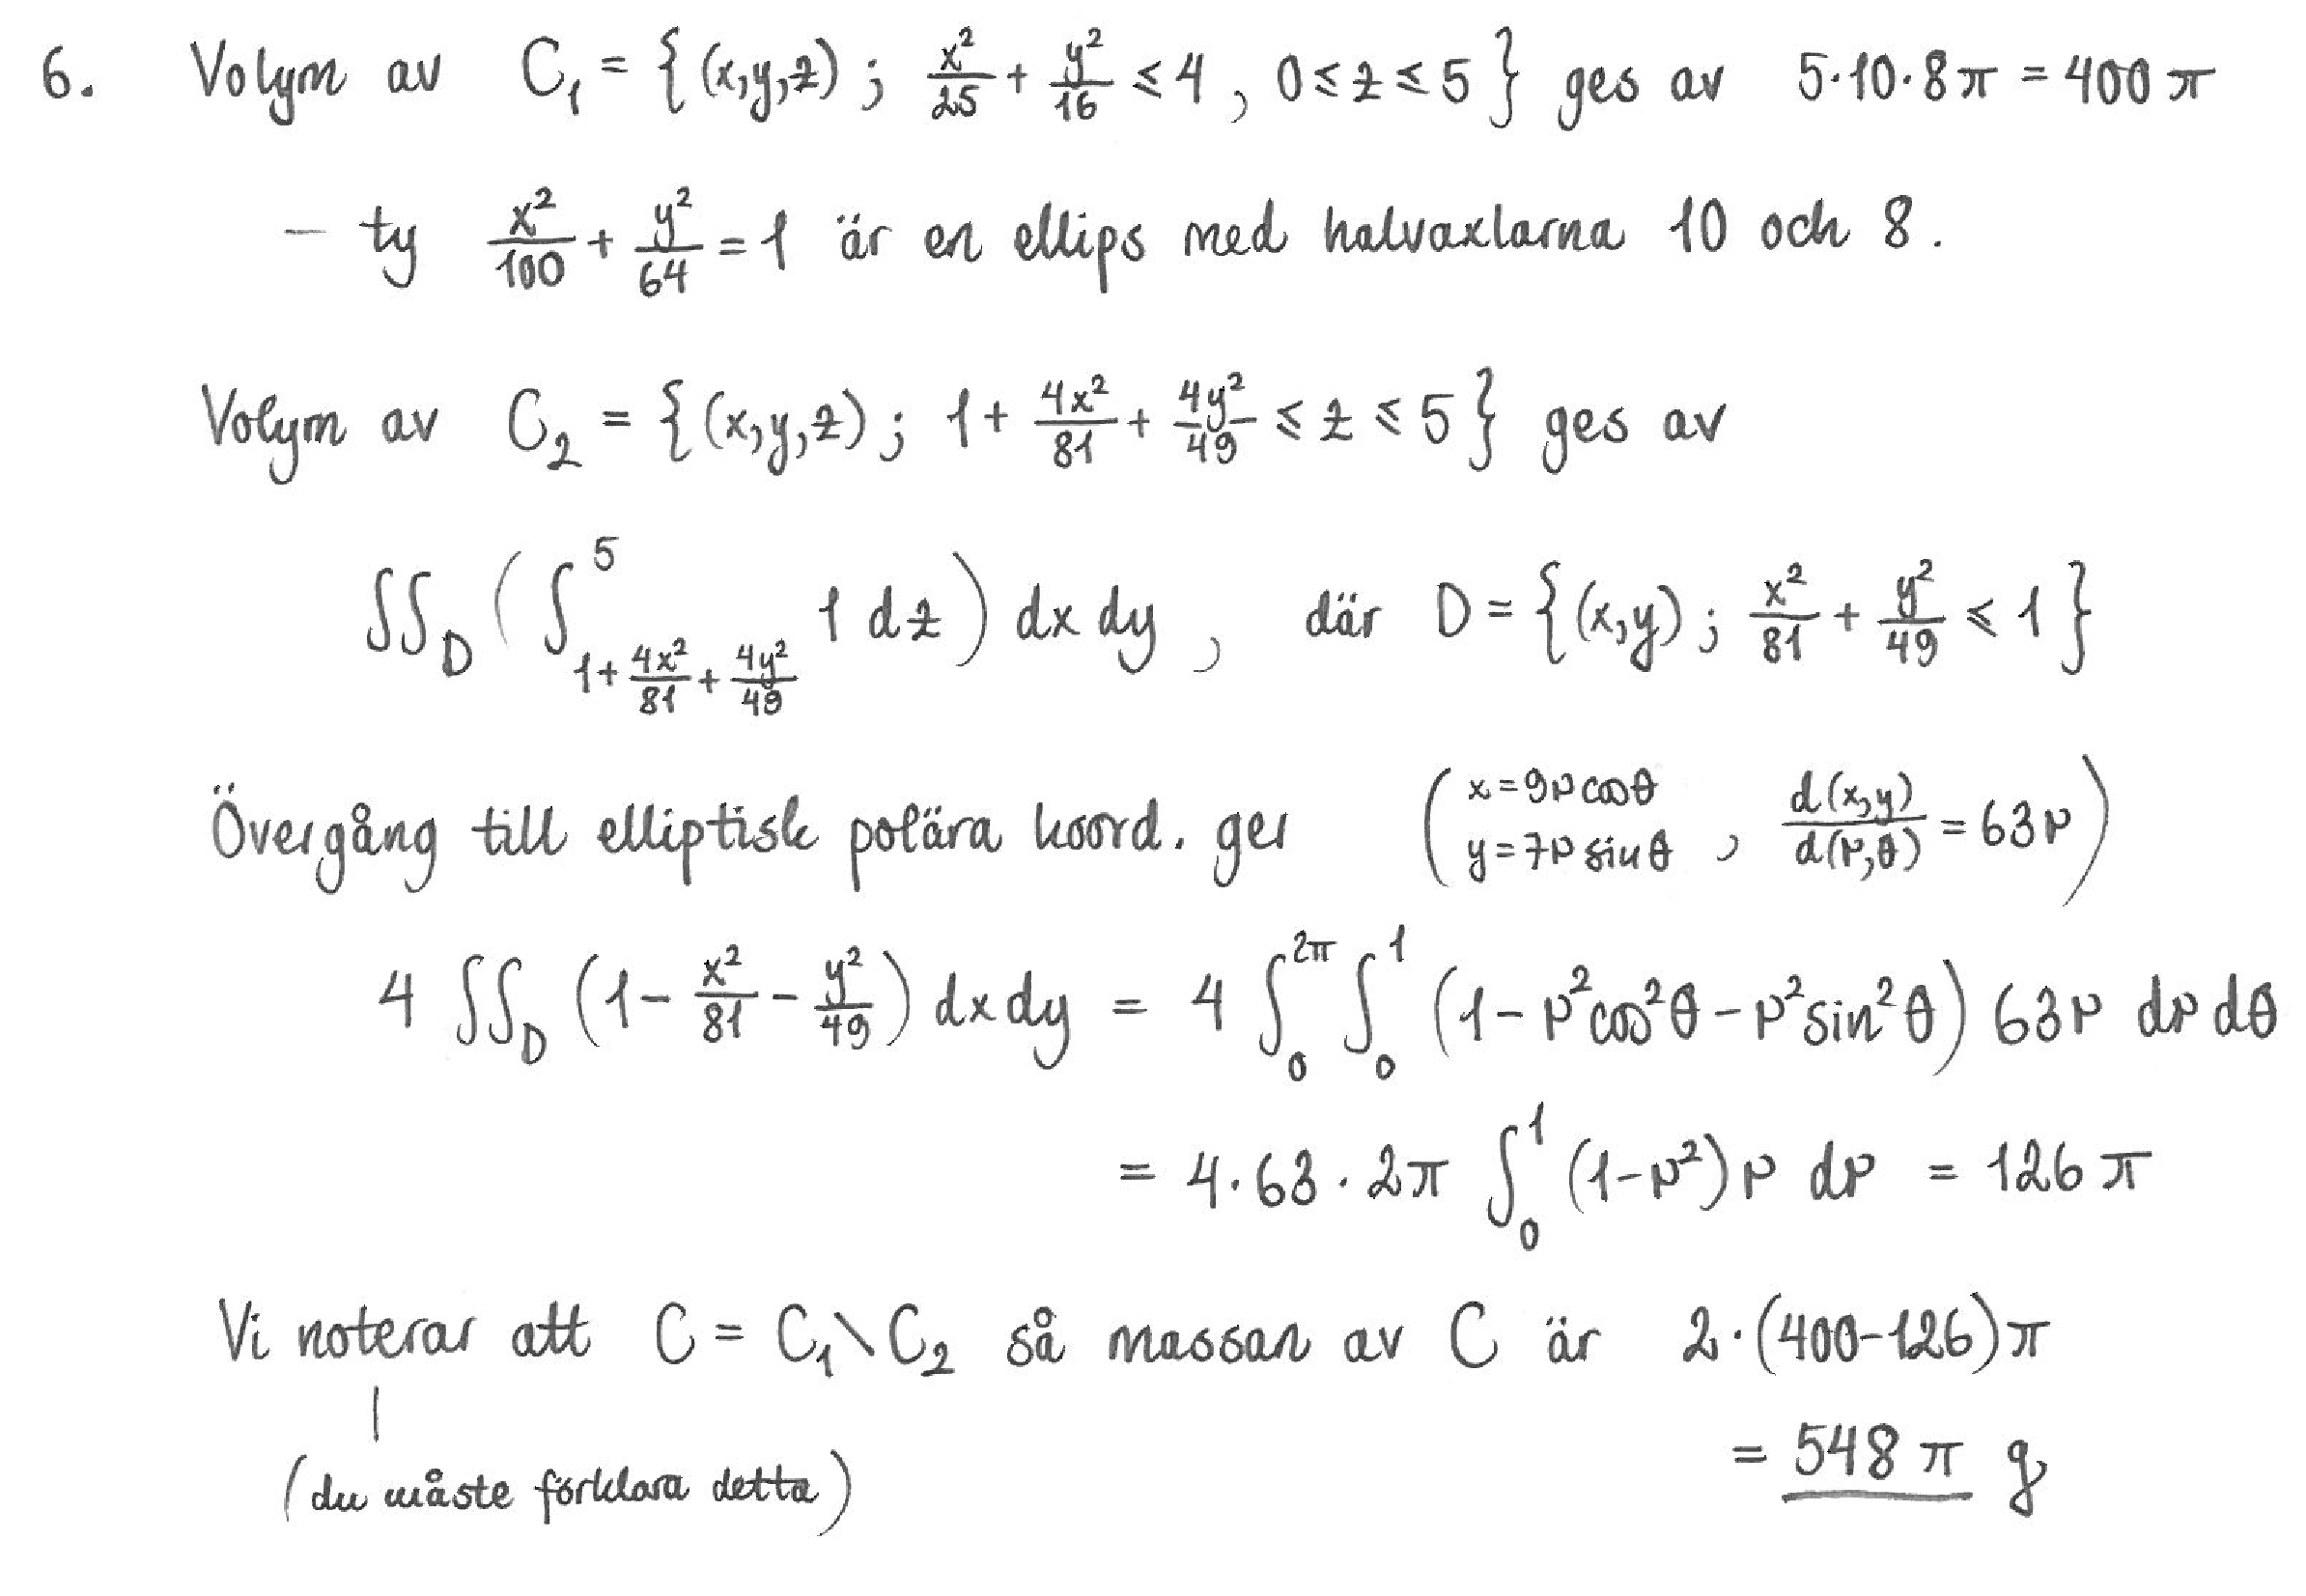 6. Volym av C₁ = {(x,y,z) ; x²/25 + y²/16 ≤ 4 , 0 ≤ z ≤ 5 } ges av 5·10·8π = 400π
– ty x²/100 + y²/64 = 1 är en ellips med halvaxlarna 10 och 8.
Volym av C₂ = {(x,y,z) ; 1 + 4x²/81 + 4y²/49 ≤ z ≤ 5 } ges av
∬_D ( ∫_{1+4x²/81+4y²/49}^{5} 1 dz ) dx dy , där D = {(x,y) ; x²/81 + y²/49 ≤ 1 }
Övergång till elliptisk polära koord. ger ( x = 9r cosθ y = 7r sinθ , d(x,y)/d(r,θ) = 63r )
4 ∬_D (1 - x²/81 - y²/49) dx dy = 4 ∫_0^{2π} ∫_0^1 (1 - r²cos²θ - r²sin²θ) 63r dr dθ
= 4·63·2π ∫_0^1 (1-r²) r dr = 126π
Vi noterar att C = C₁\C₂ så massan av C är 2·(400-126)π
(du måste förklara detta)
= 548π g